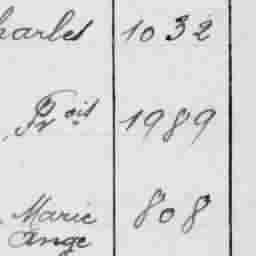 harles 1032
Fr^ois 1989
Marie 808
Ange